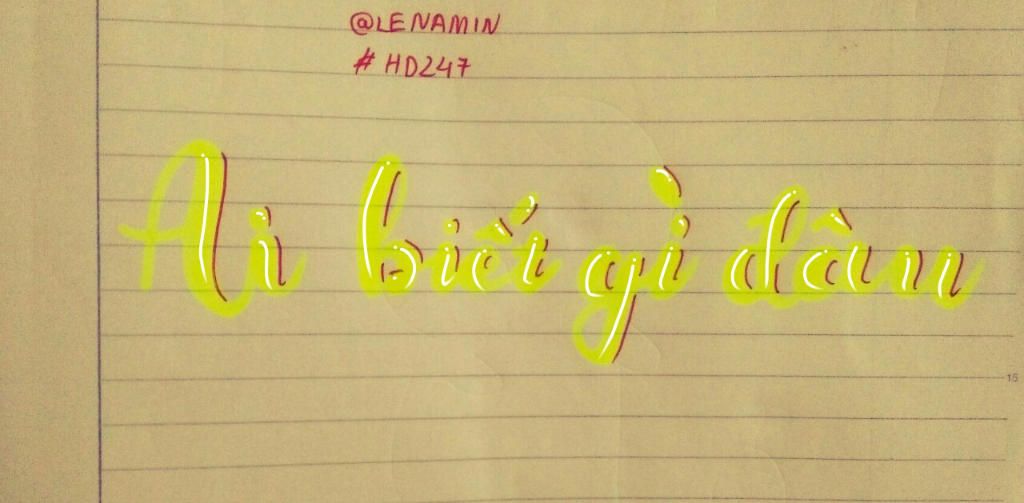 @LENAMIN
# HD247
Ai biết gì đâu
15